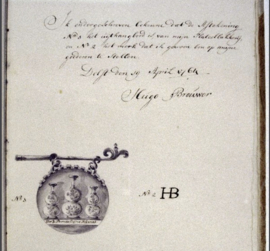 Ik ondergeschreven bekenne dat de Afteekening
No 1 het uithangbord is van mijn
in No 2 het merk dat ik gewoon ben op mijne
goederen te stellen
Delft den 19 April 1764
Hugo Brouwer
No 1
No 2 HB